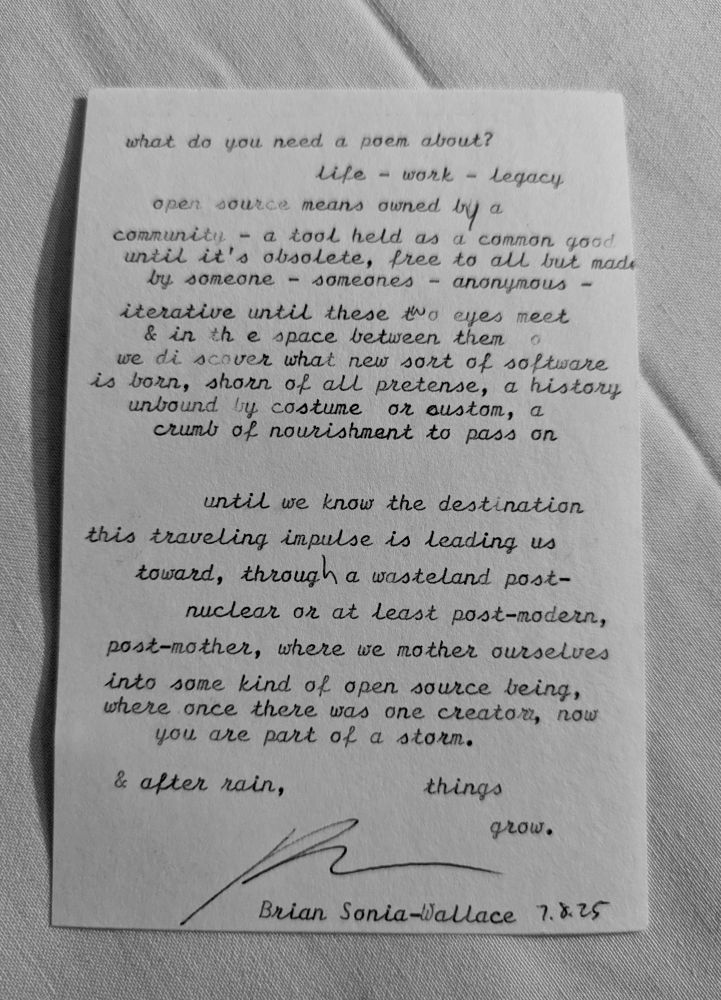 what do you need a poem about?
life - work - legacy
open source means owned by a
community - a tool held as a common good
until it's obsolete, free to all but made
by someone - someones - anonymous -
iterative until these two eyes meet
& in th e space between them o
we di scover what new sort of software
is born, shorn of all pretense, a history
unbound by costume or custom, a
crumb of nourishment to pass on
until we know the destination
this traveling impulse is leading us
toward, through a wasteland post-
nuclear or at least post-modern,
post-mother, where we mother ourselves
into some kind of open source being,
where once there was one creator, now
you are part of a storm.
& after rain, things
grow.
Brian Sonia-Wallace 7.8.25